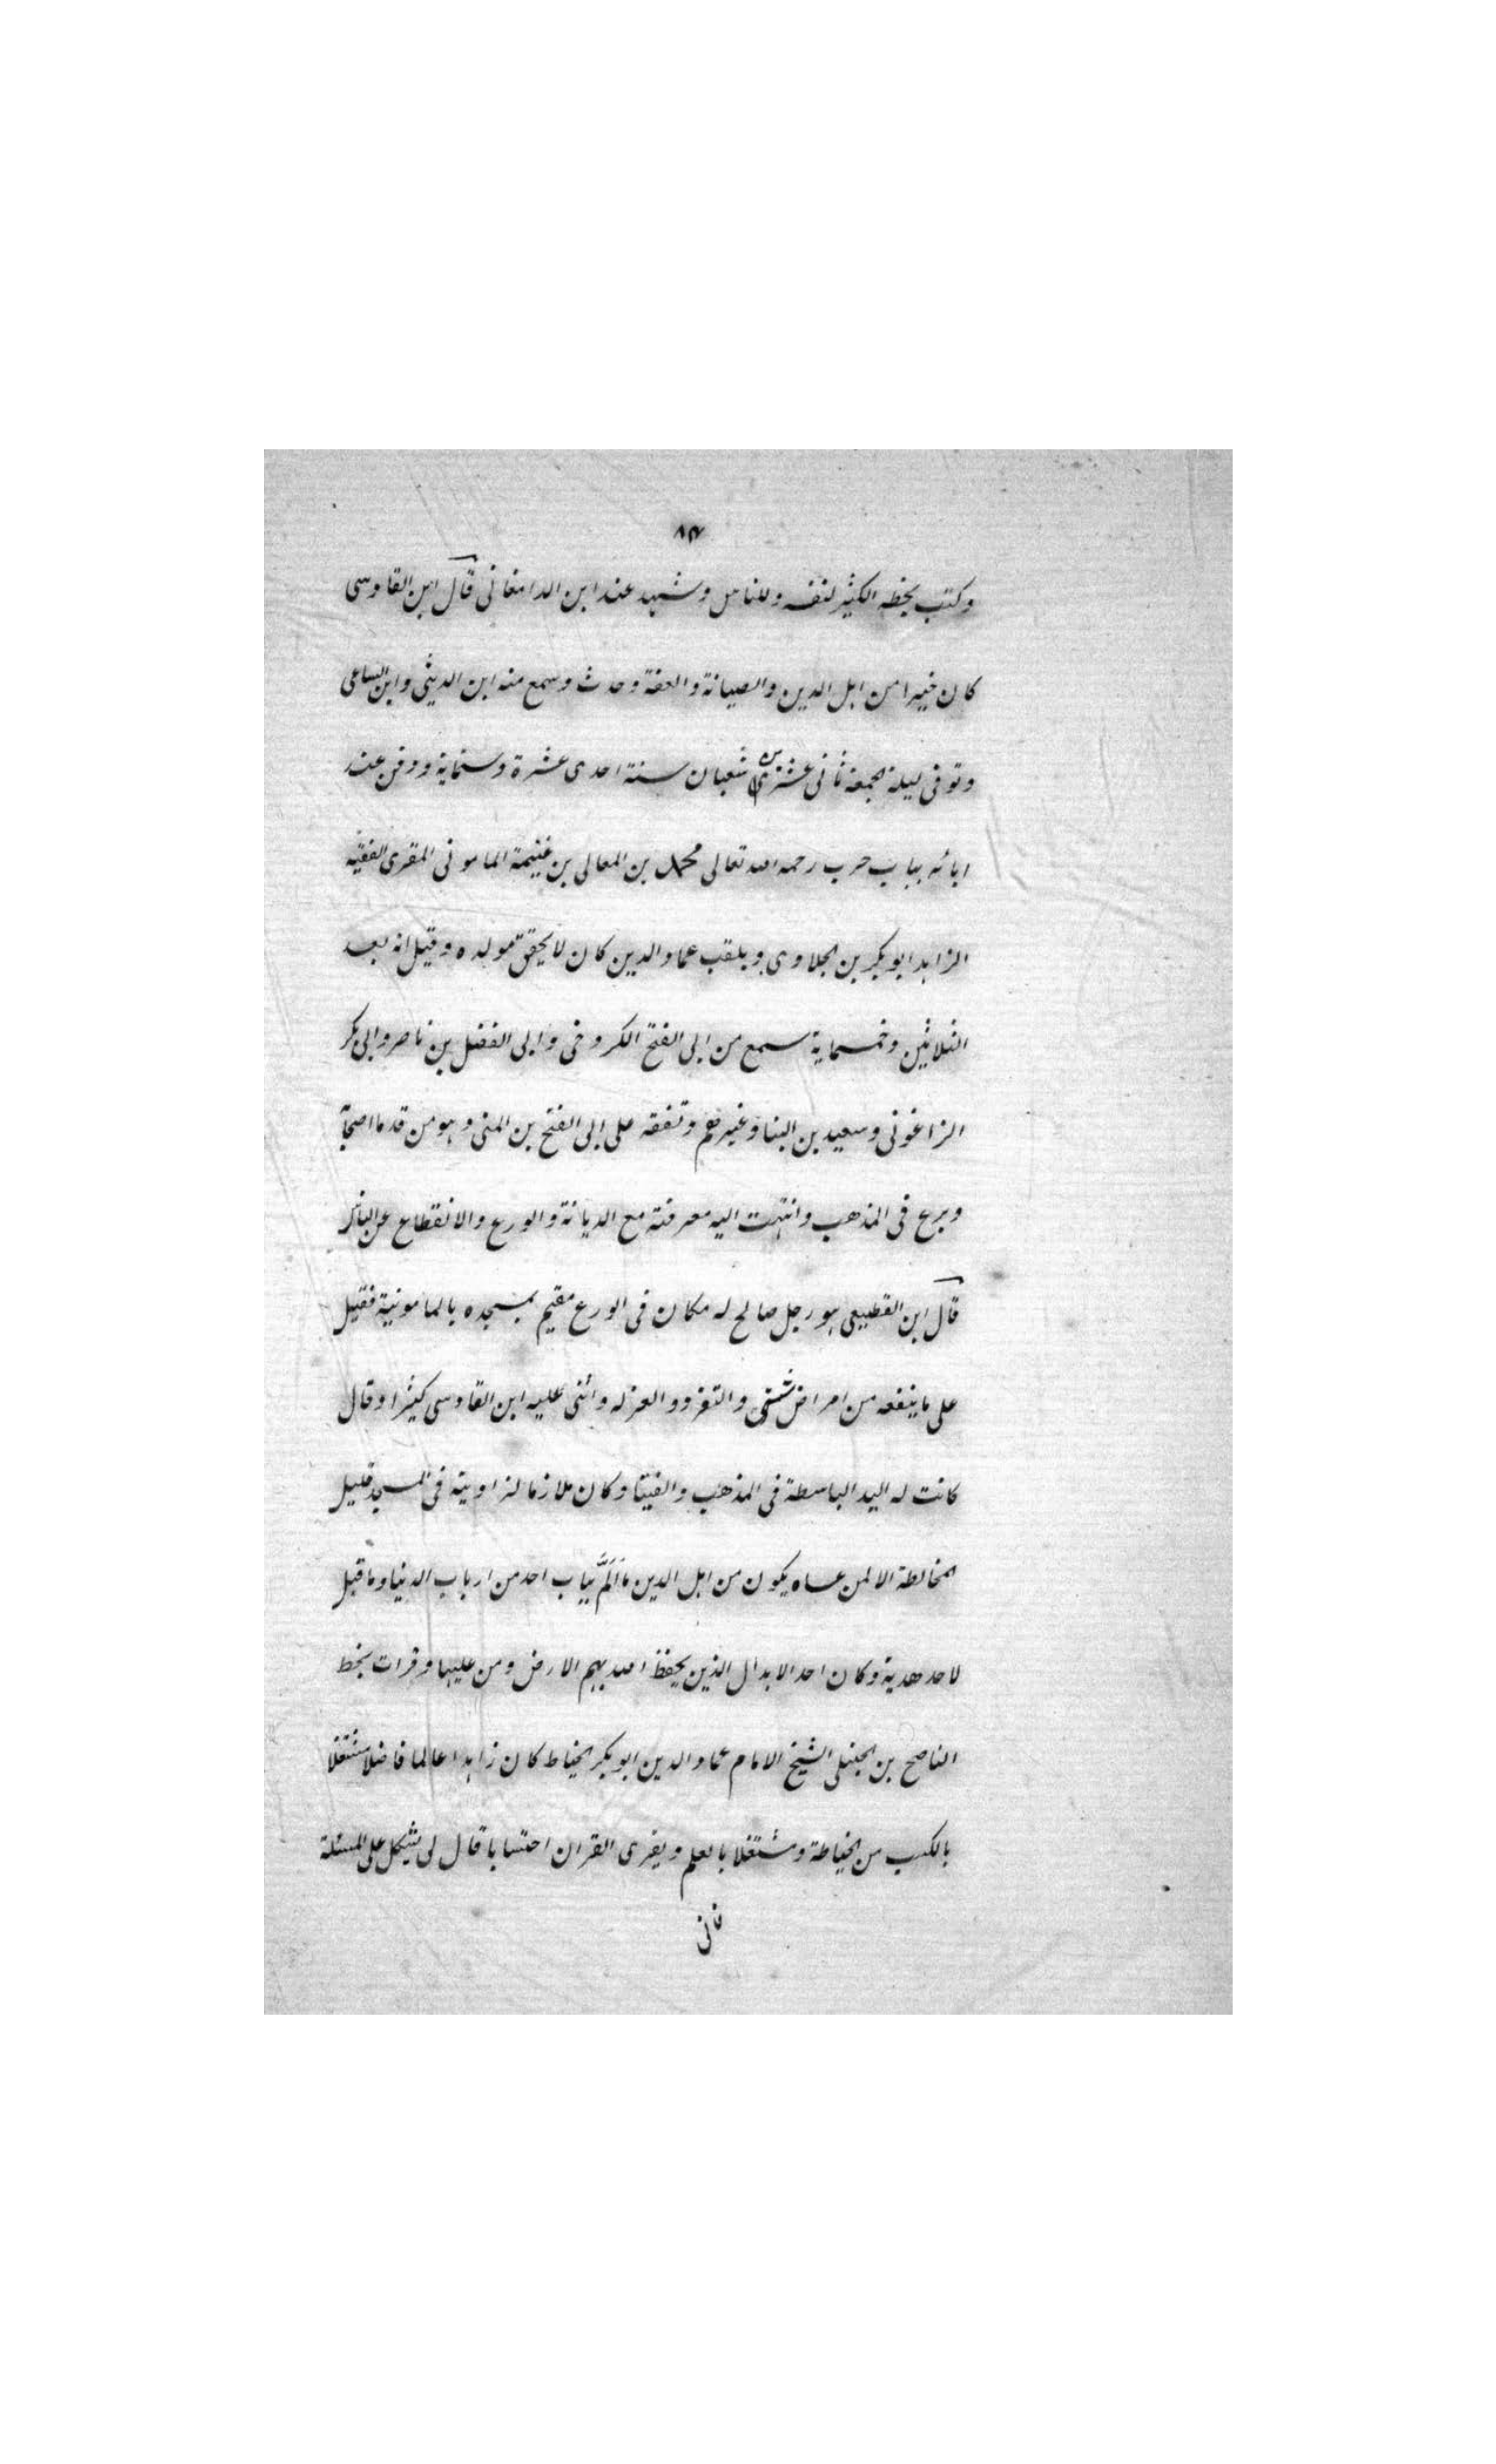 ٨٣
وكتب بخطه الكثير لنفسه وللناس وشهد عند ابن الدامغانى قال ابن القادسى
كان خيرا من اهل الدين والصيانة والعفة وحدث وسمع منه ابن الدبيثى وابن الساعى
وتوفى ليلة الجمعة ثانى عشرى شعبان سنة احدى عشرة وستماية ودفن عند
ابائه بباب حرب رحمه الله تعالى محمد بن المعالى بن غنيمة المامونى المقرى الفقيه
الزاهد ابو بكر بن الحلاوى ويلقب عماد الدين كان لا يحقق مولده وقيل انه بعد
الثلاثين وخمسماية سمع من ابى الفتح الكروخى وابى الفضل بن ناصر وابى بكر
الزاغونى وسعيد بن البنا وغيرهم وتفقه على ابى الفتح بن المنى وهو من قدما اصحابه
وبرع فى المذهب وانتهت اليه معرفته مع الديانة والورع والانقطاع عن الناس
قال ابن القطيعى هو رجل صالح له مكان فى الورع مقيم بمسجده بالمامونية فقيل
على ما ينفعه من امراض شتى والتفرد والعزله واثنى عليه ابن القادسى كثيرا وقال
كانت له اليد الباسطة فى المذهب والفيتا وكان ملازما لزاويته فى المسجد قليل
المخالطة الا لمن عساه يكون من اهل الدين ما اَلَمَّ بباب احد من ارباب الدنيا وما قبل
لاحد هدية وكان احد الابدال الذين يحفظ الله بهم الارض ومن عليها وقرات بخط
الناصح بن الحنبلى الشيخ الامام عماد الدين ابو بكر الخياط كان زاهدا عالما فاضلا مشتغلا
بالكسب من الخياطة ومشتغلا بالعلم ويقرى القران احتسابا قال لى يشكل على المسئلة
فانى